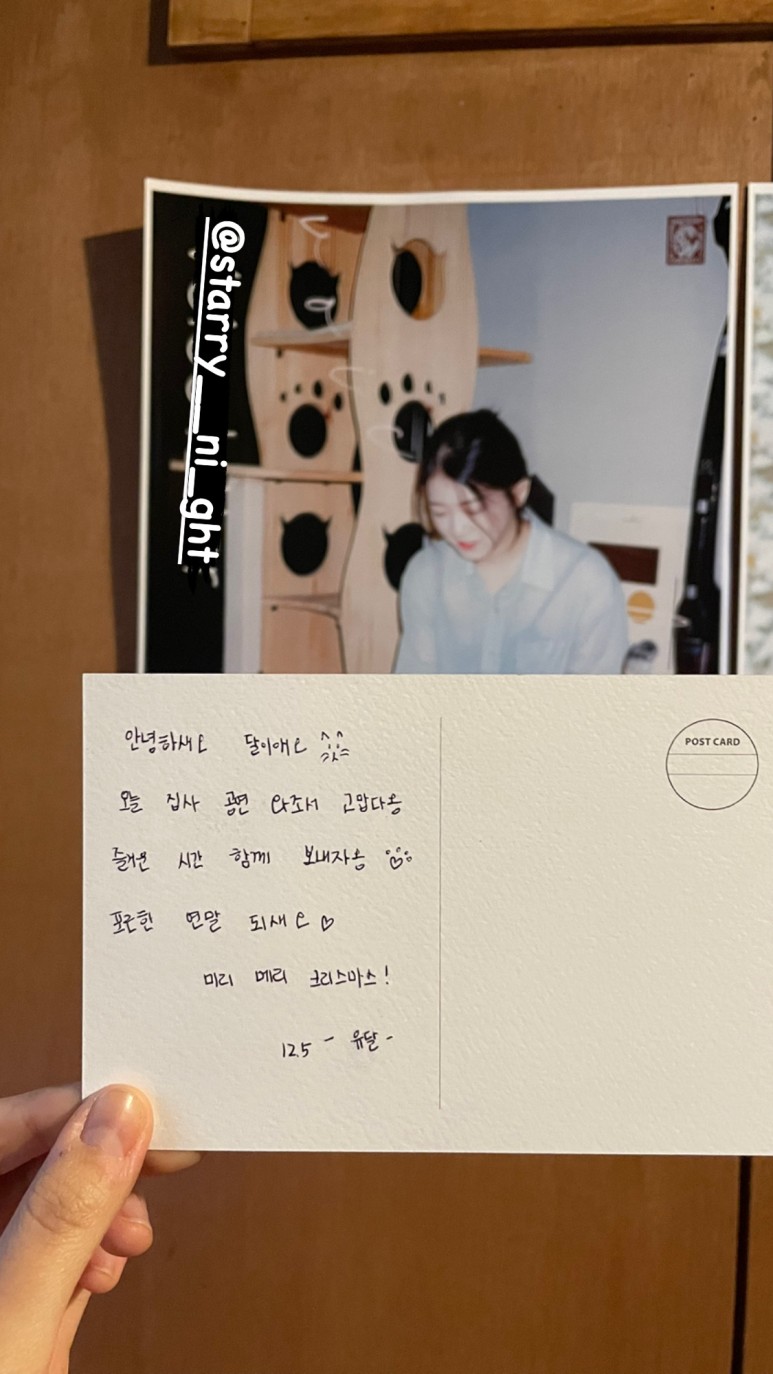 @starry__ni_ght
POST CARD
안녕하새요 달이애요
오늘 집사 공연 와조서 고맙다옹
즐거운 시간 함께 보내자옹
포근한 연말 되새요♡
미리 메리 크리스마스!
12.5 - 유달 -